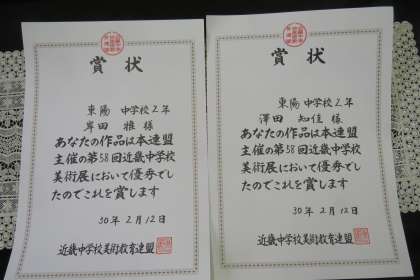 賞状
東陽 中学校2年
岸田 雅 様
あなたの作品は本連盟
主催の第58回近畿中学校
美術展において優秀でし
たのでこれを賞します
30年 2月 12日
近畿中学校美術教育連盟
賞状
東陽 中学校2年
澤田 知佳 様
あなたの作品は本連盟
主催の第58回近畿中学校
美術展において優秀でし
たのでこれを賞します
30年 2月 12日
近畿中学校美術教育連盟